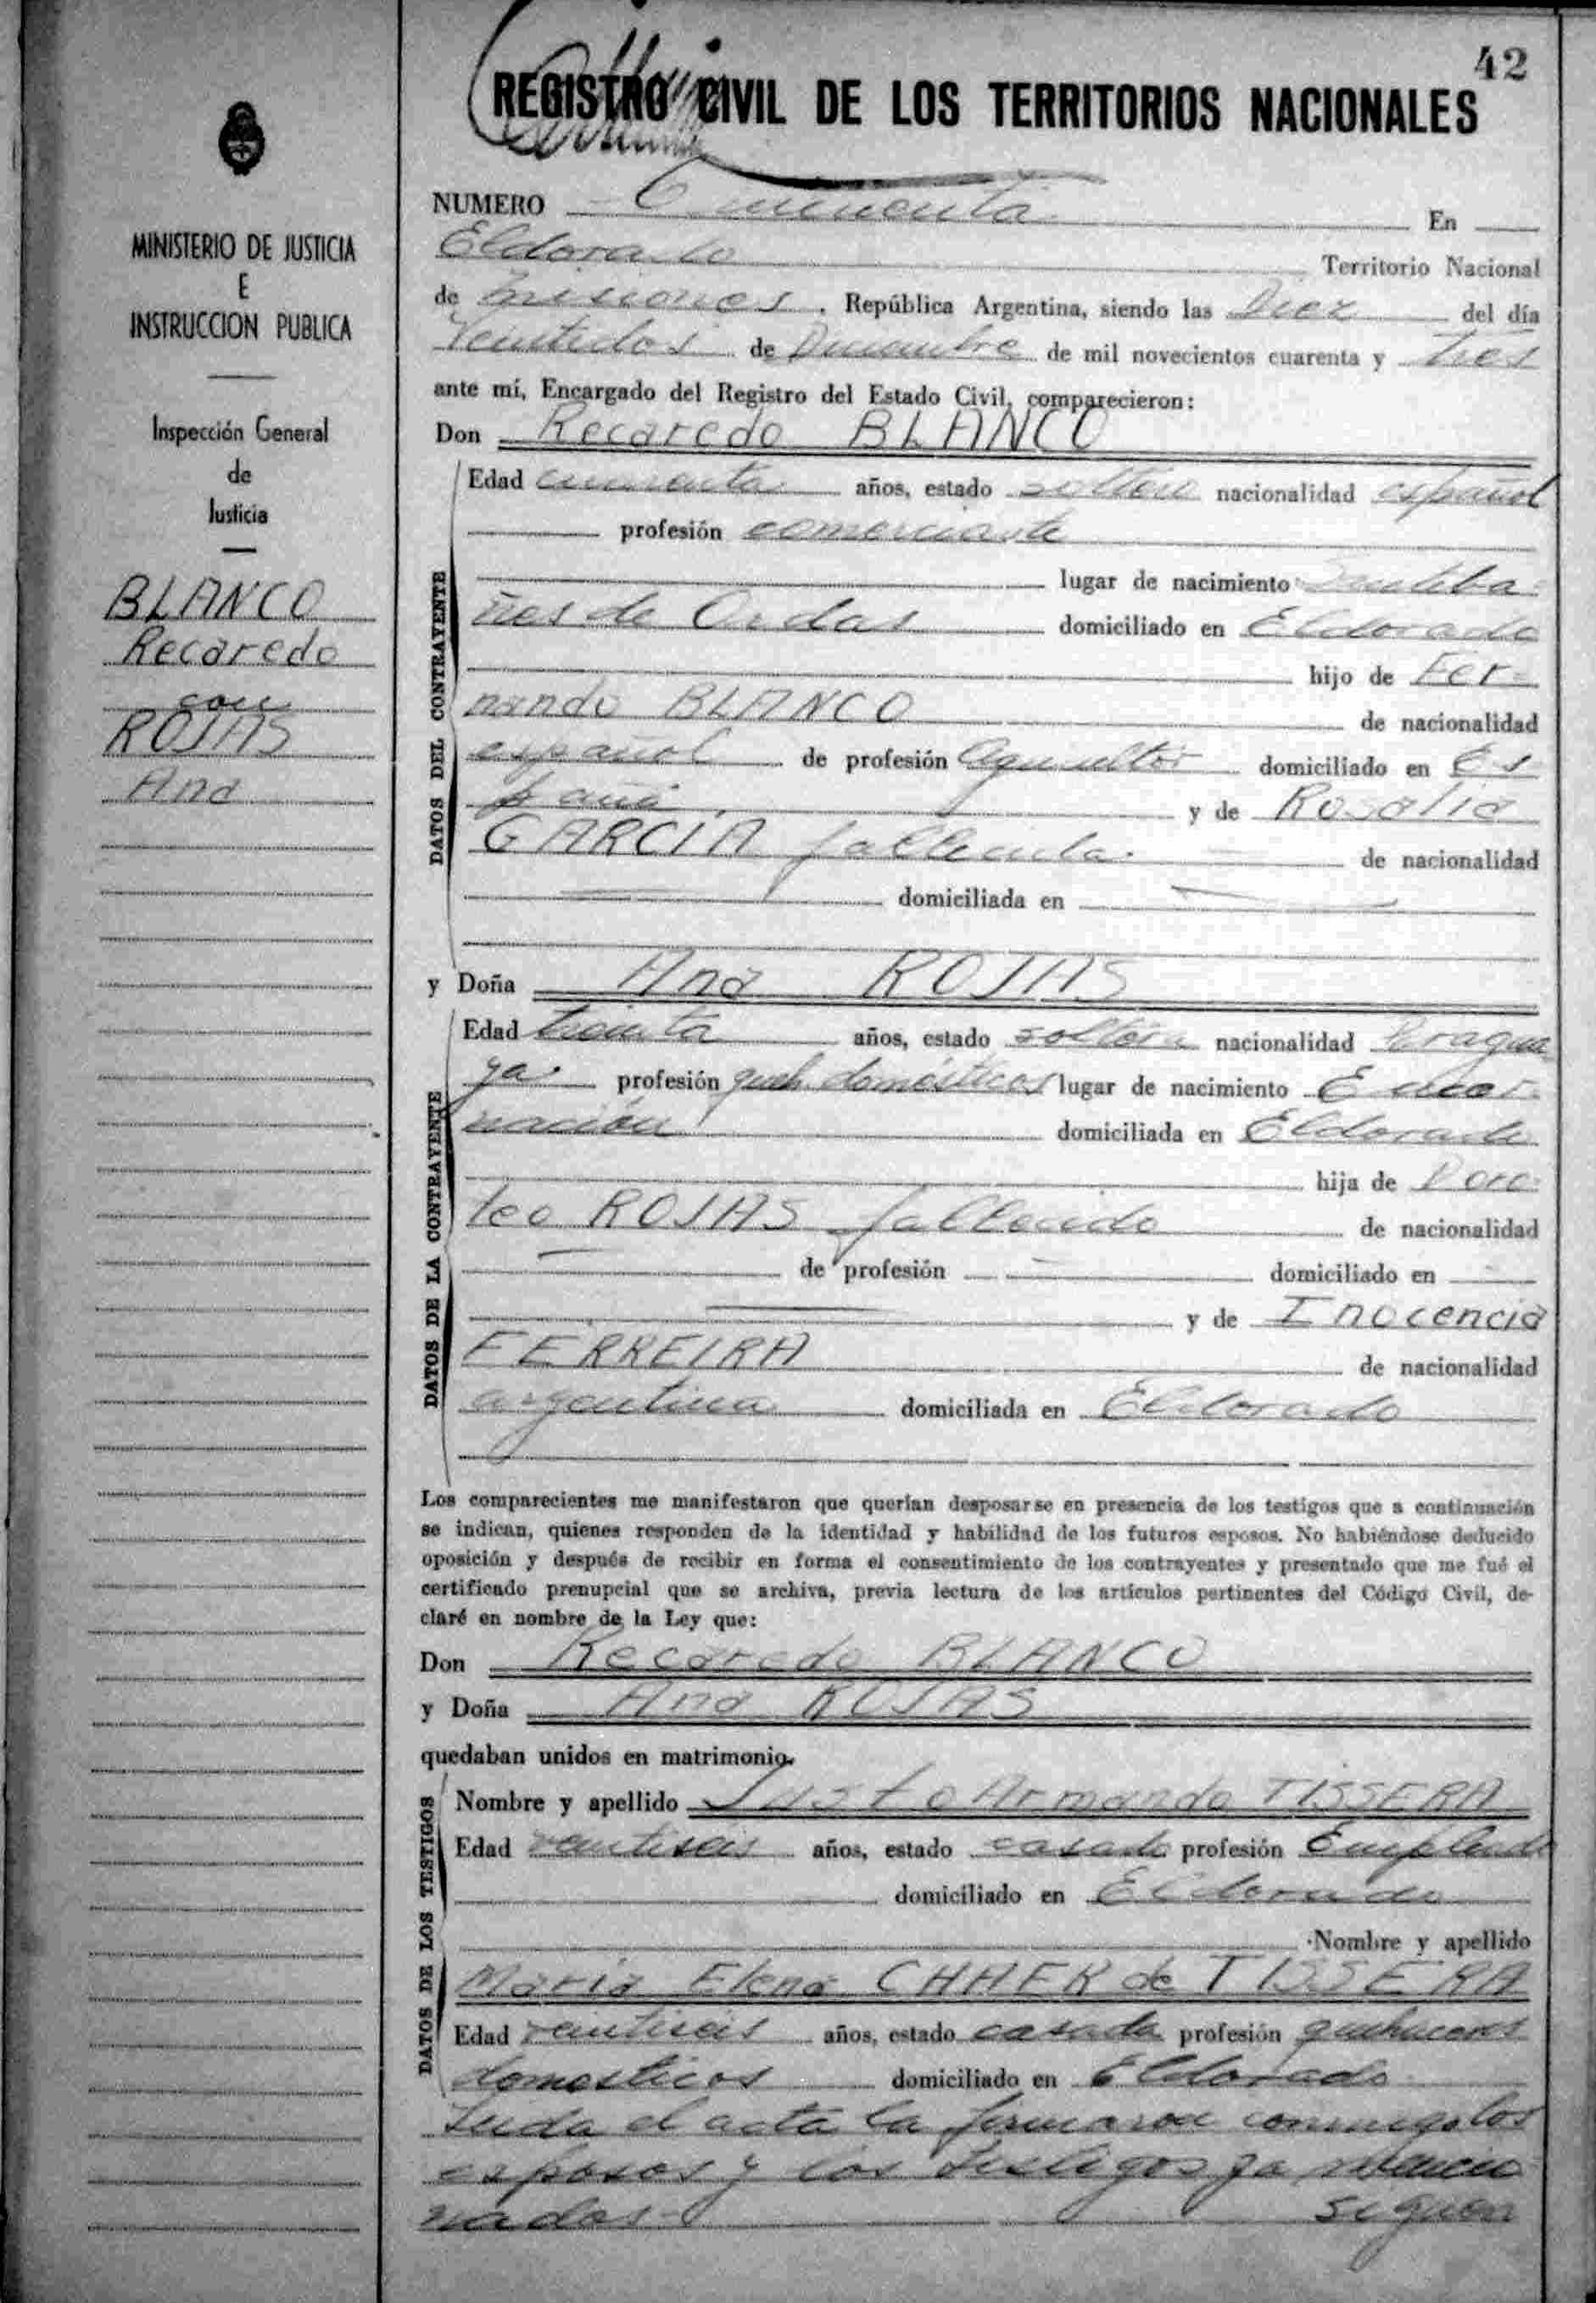 42
REGISTRO CIVIL DE LOS TERRITORIOS NACIONALES
MINISTERIO DE JUSTICIA
E
INSTRUCCION PUBLICA
Inspección General
de
Justicia
BLANCO
Recaredo
con
ROJAS
Ana
NUMERO Cincuenta En
Eldorado Territorio Nacional
de Misiones, República Argentina, siendo las Diez del día
Veintidos de Diciembre de mil novecientos cuarenta y tres
ante mí, Encargado del Registro del Estado Civil, comparecieron:
Don Recaredo BLANCO
DATOS DEL CONTRAYENTE
Edad cuarenta años, estado soltero nacionalidad español
profesión comerciante
lugar de nacimiento Santiba
ñes de Ordas domiciliado en Eldorado
hijo de Fer-
nando BLANCO de nacionalidad
español de profesión Agricultor domiciliado en Es
paña y de Rosalia
GARCIA fallecida. de nacionalidad
domiciliada en
y Doña Ana ROJAS
DATOS DE LA CONTRAYENTE
Edad treinta años, estado soltera nacionalidad Paragua
ya profesión queh. domésticos lugar de nacimiento Encar-
nación domiciliada en Eldorado
hija de Doro
teo ROJAS fallecido de nacionalidad
de profesión domiciliado en
y de Inocencia
FERREIRA de nacionalidad
argentina domiciliada en Eldorado
Los comparecientes me manifestaron que querían desposarse en presencia de los testigos que a continuación
se indican, quienes responden de la identidad y habilidad de los futuros esposos. No habiéndose deducido
oposición y después de recibir en forma el consentimiento de los contrayentes y presentado que me fué el
certificado prenupcial que se archiva, previa lectura de los artículos pertinentes del Código Civil, de-
claré en nombre de la Ley que:
Don Recaredo BLANCO
y Doña Ana ROJAS
quedaban unidos en matrimonio.
DATOS DE LOS TESTIGOS
Nombre y apellido Justo Armando TISSERA
Edad veintiseis años, estado casado profesión Empleado
domiciliado en Eldorado
Nombre y apellido
Maria Elena CHAER de TISSERA
Edad veintiseis años, estado casada profesión quehaceres
domesticos domiciliado en Eldorado
Leida el acta la firmaron conmigo los
esposos y los testigos ya mencio
nados siguen